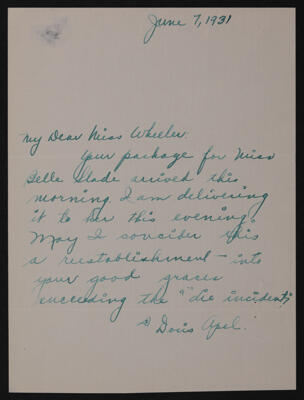 June 7, 1931
My Dear Miss Wheeler:
Your package for Miss
Belle Slade arrived this
morning. I am delivering
it to her this evening.
May I consider this
a reestablishment - into
your good graces
succeeding the "die incident"?
Doris Apel.